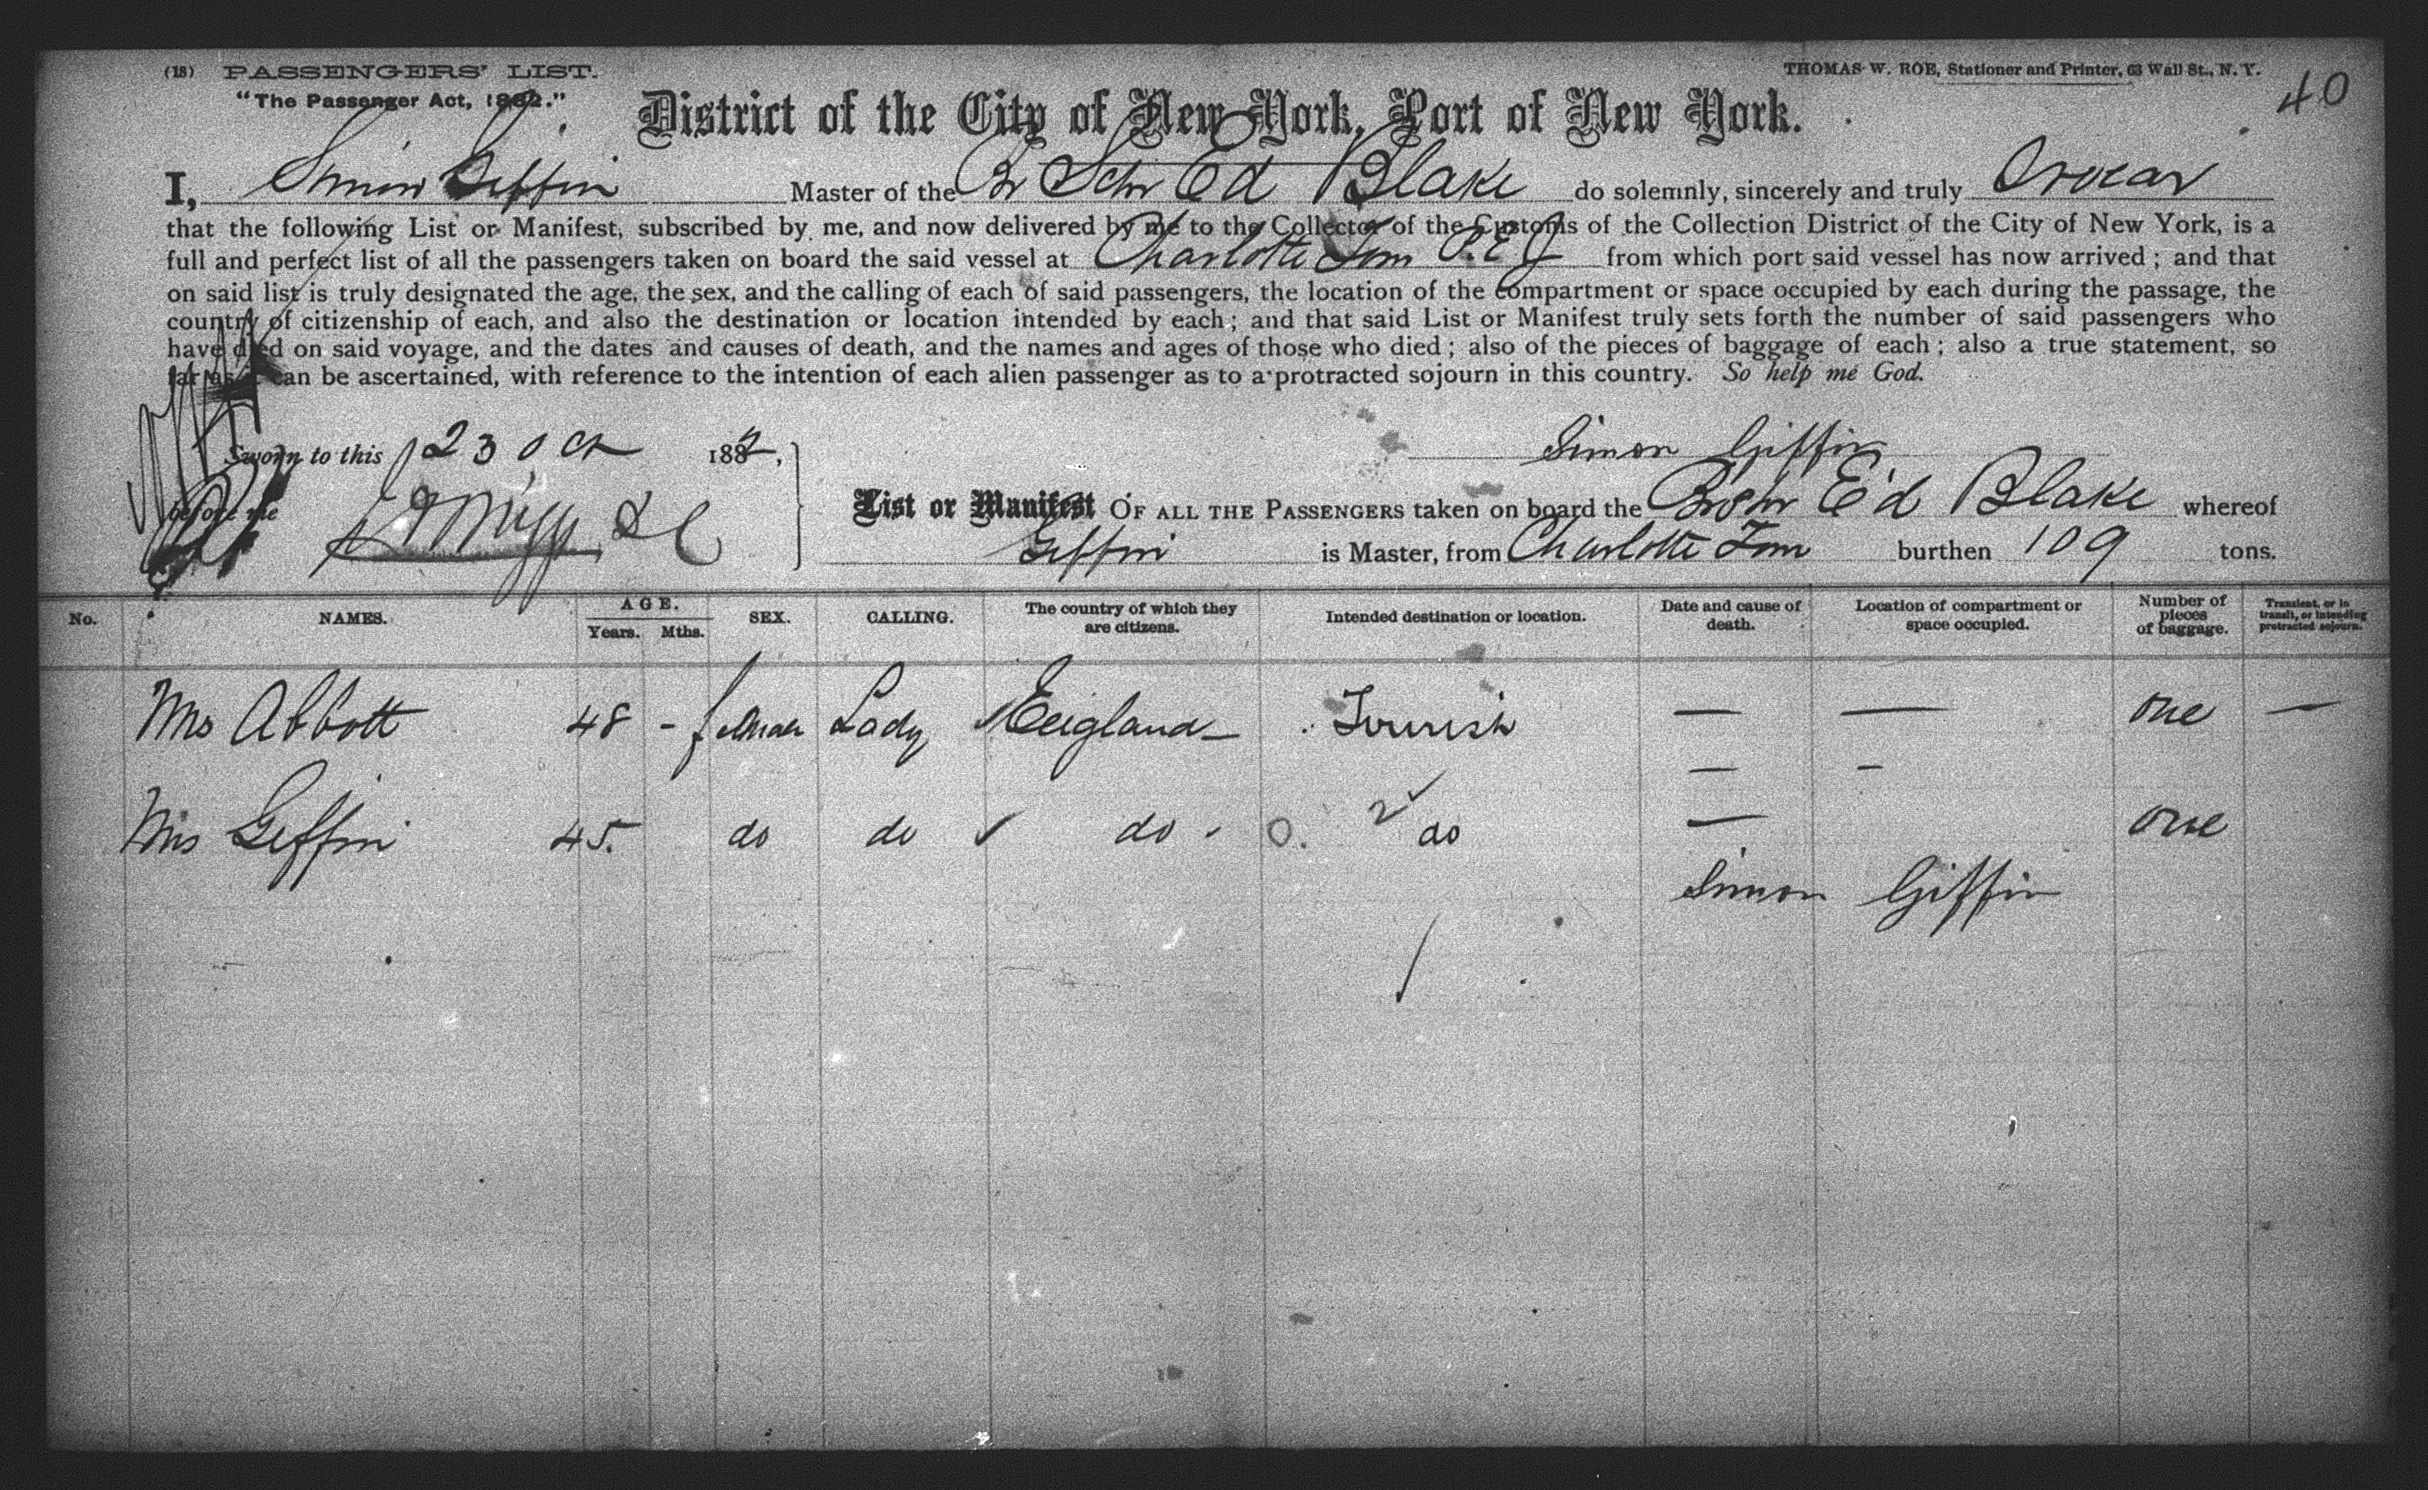 (18) PASSENGERS' LIST.
THOMAS W. ROE, Stationer and Printer, 63 Wall St., N. Y.
40
"The Passenger Act, 1882."
District of the City of New York, Port of New York.
I, Simon Giffin Master of the Br Schr Ed Blake do solemnly, sincerely and truly Swear
that the following List or Manifest, subscribed by me, and now delivered by me to the Collector of the Customs of the Collection District of the City of New York, is a
full and perfect list of all the passengers taken on board the said vessel at Charlotte Town P.E.I from which port said vessel has now arrived; and that
on said list is truly designated the age, the sex, and the calling of each of said passengers, the location of the compartment or space occupied by each during the passage, the
country of citizenship of each, and also the destination or location intended by each; and that said List or Manifest truly sets forth the number of said passengers who
have died on said voyage, and the dates and causes of death, and the names and ages of those who died; also of the pieces of baggage of each; also a true statement, so
far as it can be ascertained, with reference to the intention of each alien passenger as to a protracted sojourn in this country. So help me God.
Sworn to this 23 Oct 188
Simon Giffin
before me
List or Manifest OF ALL THE PASSENGERS taken on board the Br Schr Ed Blake whereof
Giffin is Master, from Charlotte Town burthen 109 tons.
No. NAMES. AGE. Years. Mths. SEX. CALLING. The country of which they are citizens. Intended destination or location. Date and cause of death. Location of compartment or space occupied. Number of pieces of baggage. Transient, or in transit, or intending protracted sojourn.
Mrs Abbott 48 - female Lady England - Tourist — — one —
— -
Mrs Giffin 45. do do do. 0. 2 do — one
Simon Giffin